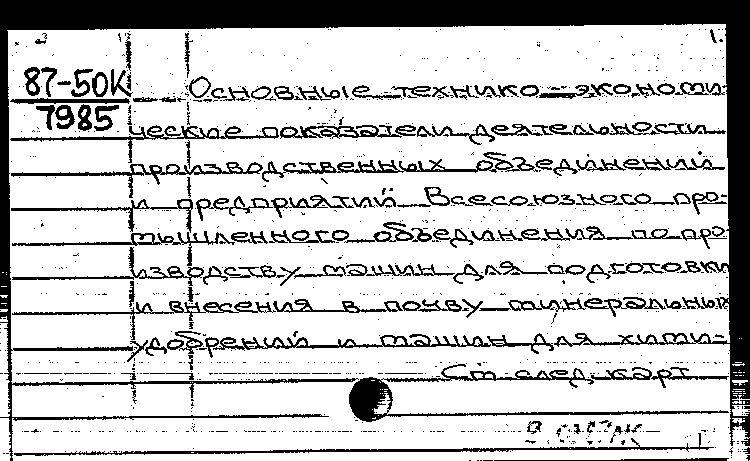 1.
87-50К Основные технико-экономи-
7985 ческие показатели деятельности
производственных объединений
и предприятий Всесоюзного про-
мышленного объединения по про-
изводству машин для подготовки
и внесения в почву минеральных
удобрений и машин для хими-
См. след. карт.